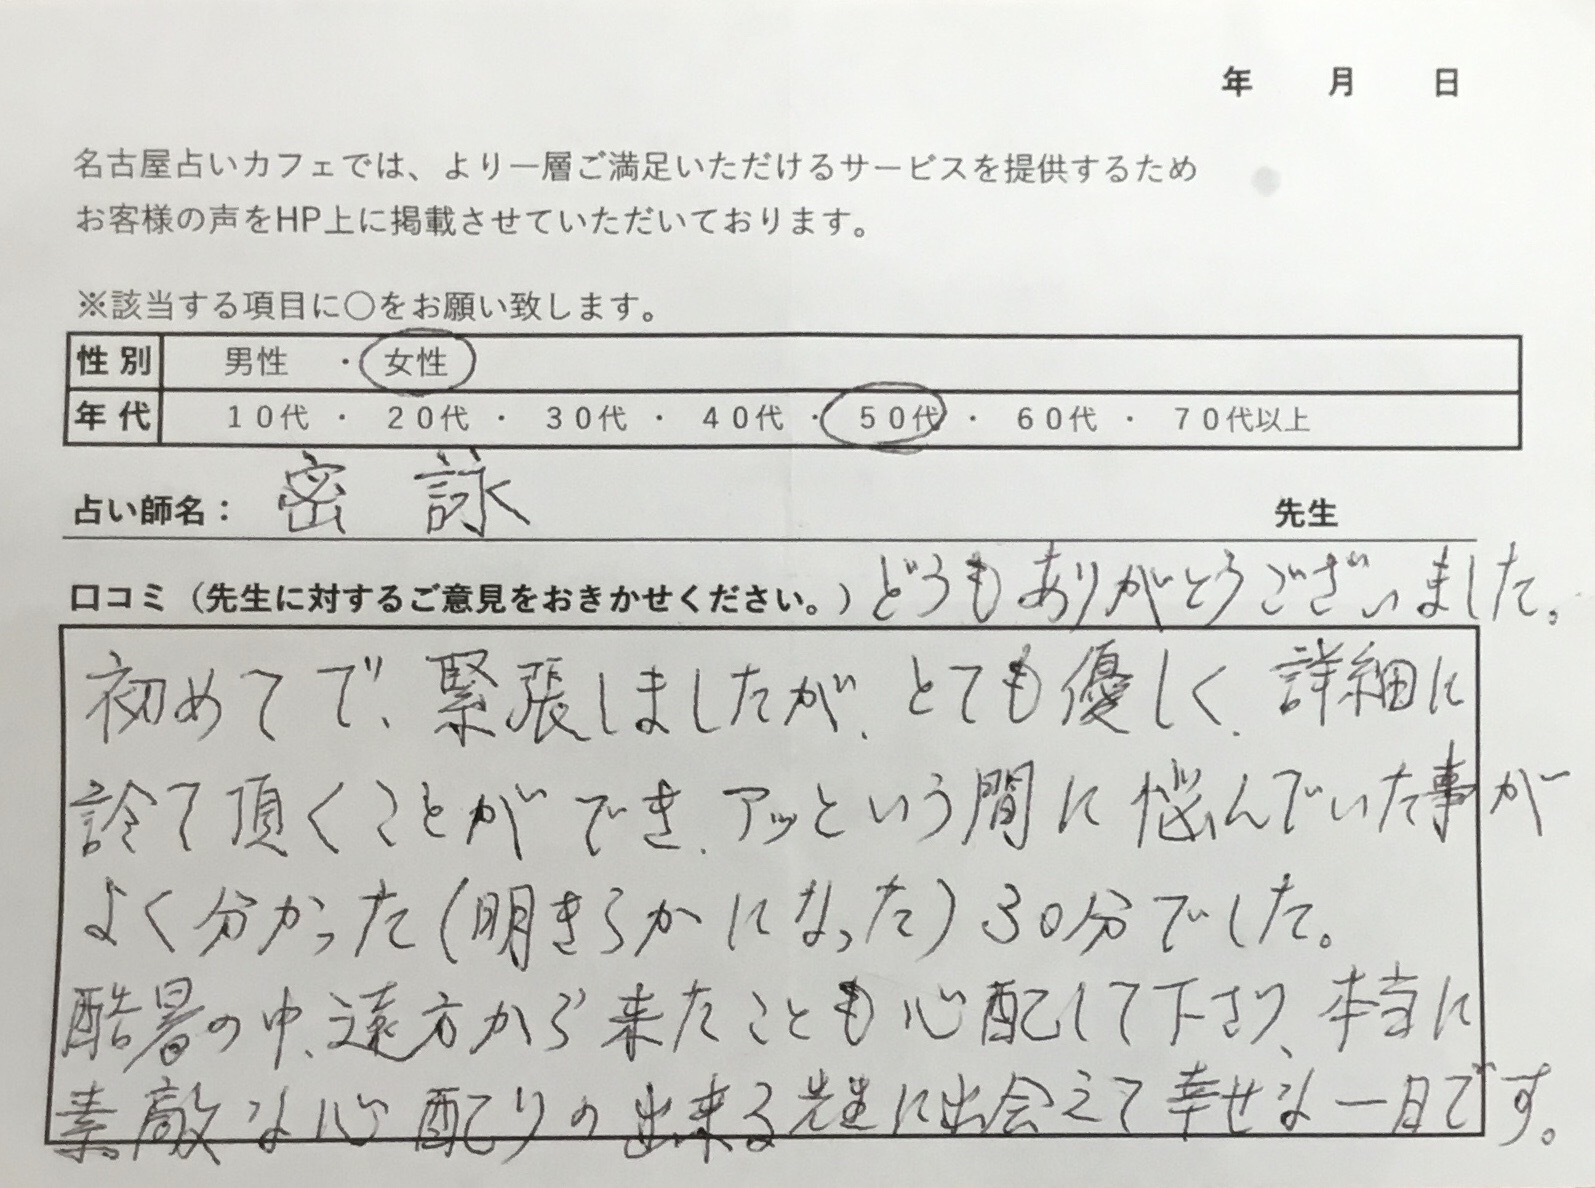 年 月 日
名古屋占いカフェでは、より一層ご満足いただけるサービスを提供するため
お客様の声をHP上に掲載させていただいております。
※該当する項目に〇をお願い致します。
性別 男性 ・ 女性
年代 10代 ・ 20代 ・ 30代 ・ 40代 ・ 50代 ・ 60代 ・ 70代以上
占い師名： 密詠 先生
口コミ（先生に対するご意見をおきかせください。）どうもありがとうございました。
初めてで、緊張しましたが、とても優しく、詳細に
診て頂くことができ、アッという間に悩んでいた事が
よく分かった（明きらかになった）30分でした。
酷暑の中、遠方から来たことも心配して下さり、本当に
素敵な心配りの出来る先生に出会えて幸せな一日です。